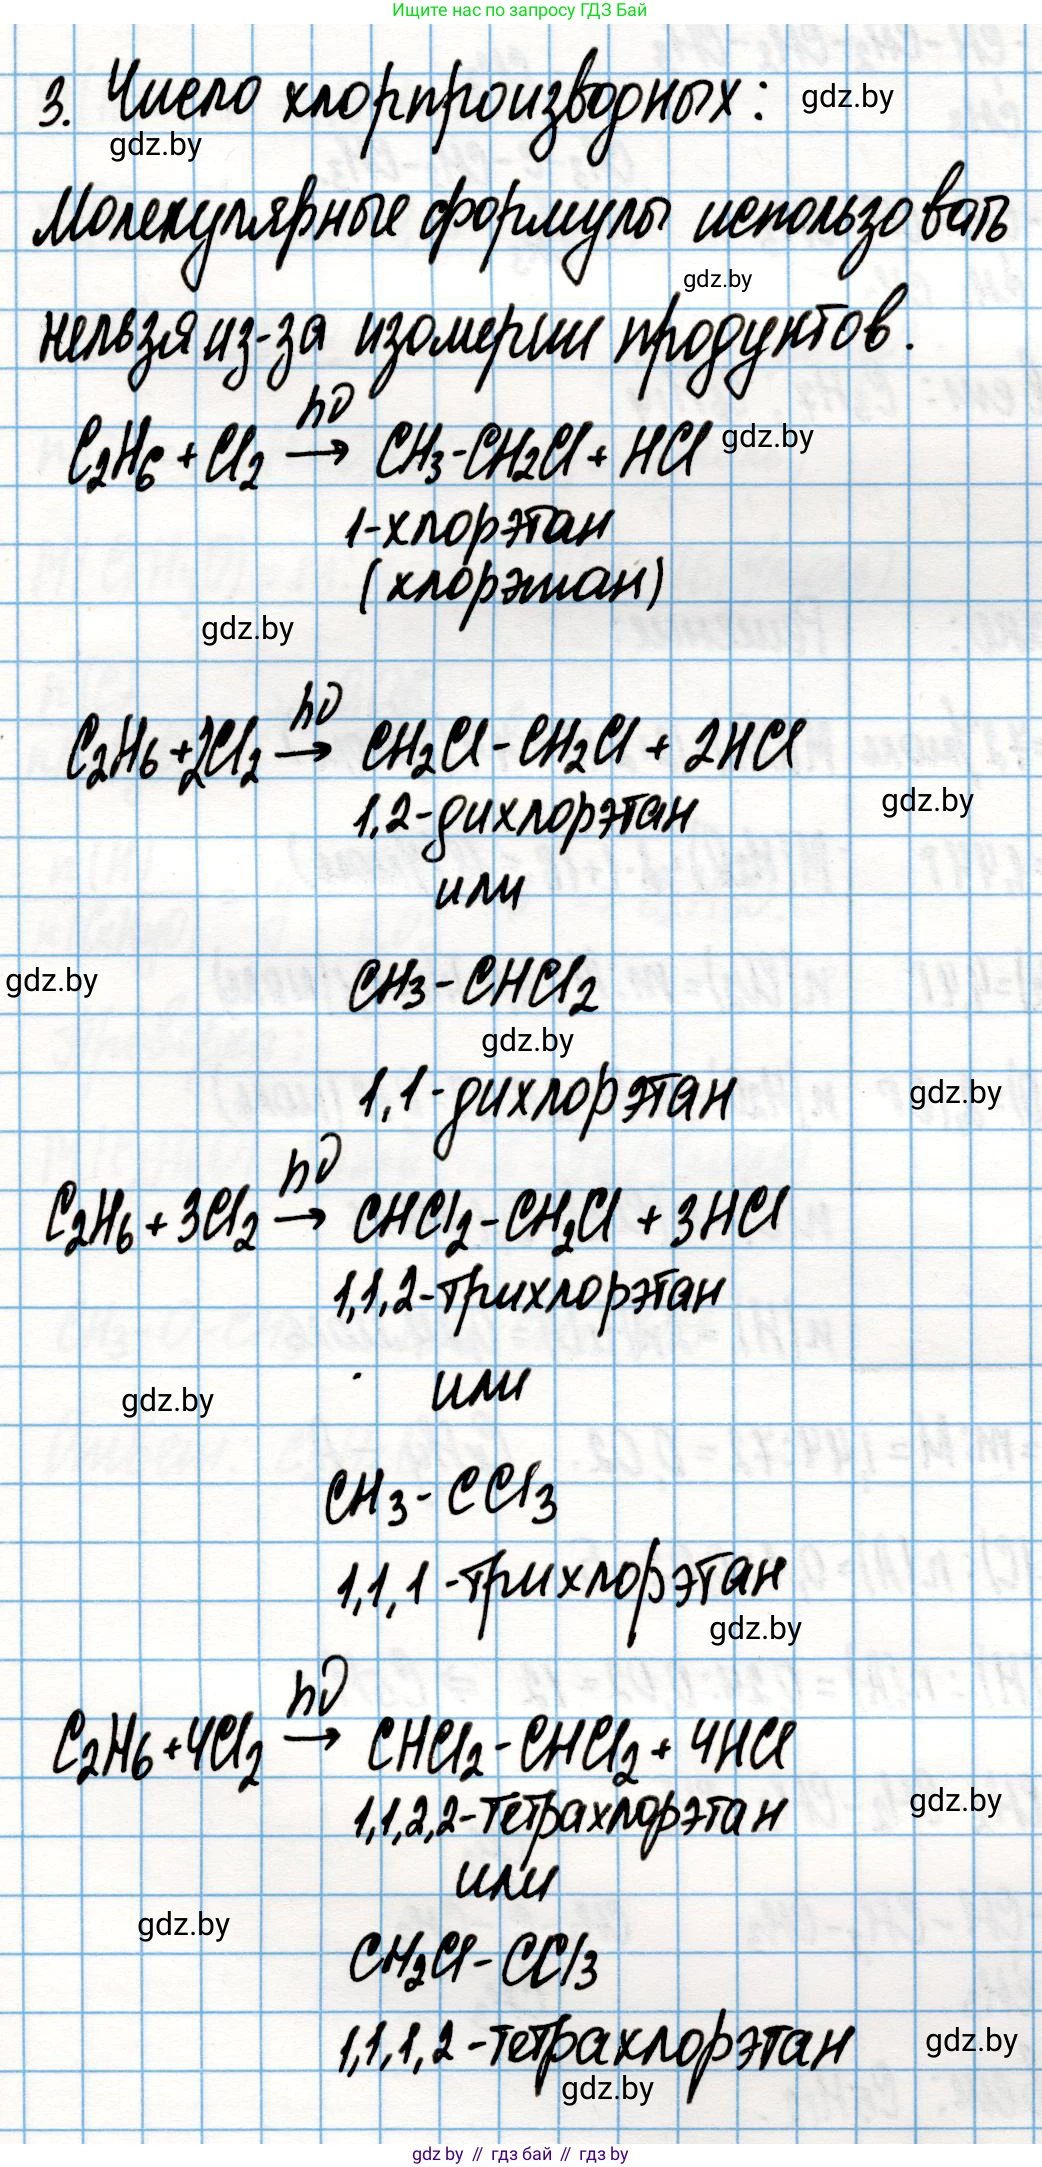 Ищите нас по запросу ГДЗ Бай
3. Число хлорпроизводных: gdz.by
gdz.by
Молекулярные формулы использовать
gdz.by
нельзя из-за изомерии продуктов.
hυ
C₂H₆ + Cl₂ → CH₃-CH₂Cl + HCl gdz.by
1-хлорэтан
(хлорэтан)
gdz.by
hυ
C₂H₆ + 2Cl₂ → CH₂Cl - CH₂Cl + 2HCl
gdz.by
1,2-дихлорэтан
или
gdz.by
CH₃ - CHCl₂
gdz.by
1,1-дихлорэтан gdz.by
hυ
C₂H₆ + 3Cl₂ → CHCl₂ - CH₂Cl + 3HCl
1,1,2-трихлорэтан
или
gdz.by
CH₃ - CCl₃
1,1,1-трихлорэтан
gdz.by
hυ
C₂H₆ + 4Cl₂ → CHCl₂ - CHCl₂ + 4HCl
gdz.by
1,1,2,2-тетрахлорэтан
или
gdz.by
CH₂Cl - CCl₃
1,1,1,2-тетрахлорэтан gdz.by
gdz.by
gdz by // гдз бай // гдз by